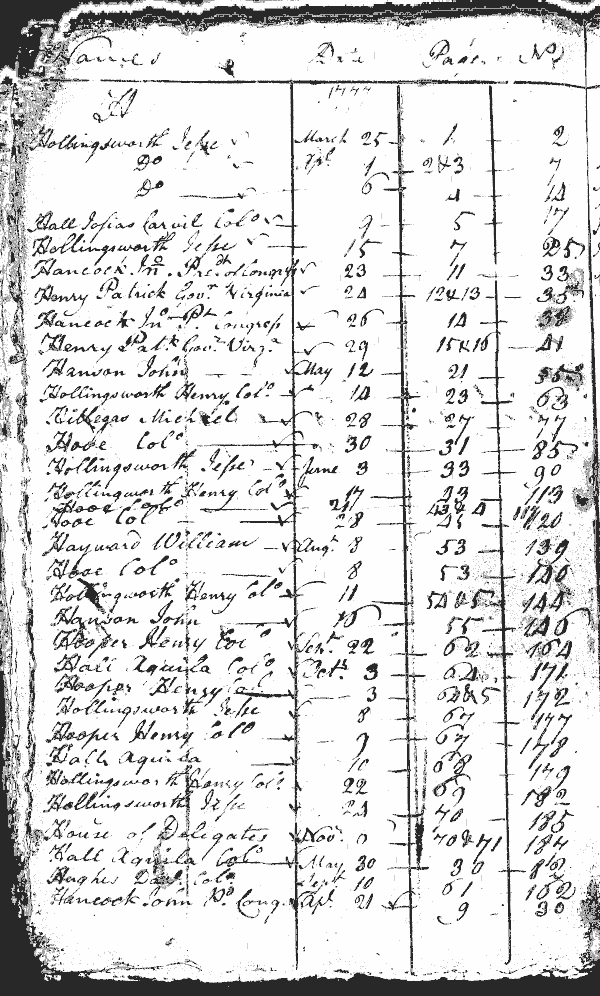 Names Date Pages No
H 1777
Hollingsworth Jesse March 25 1 2
Do Apl 1 2&3 7
Do 6 4 14
Hall Josias Carvil Colo 9 5 17
Hollingsworth Jesse 15 7 25
Hancock Jno. Predt of Congress 23 11 33
Henry Patrick Govr Virginia 24 12&13 35
Hancock Jno Pt Congress 26 14 38
Henry Patk Govr Virga 29 15&16 41
Hanson John May 12 21 55
Hollingsworth Henry Colo 14 23 63
Hillegas Michael 28 27 77
Hooe Colo 30 31 85
Hollingsworth Jesse June 3 33 90
Hollingsworth Henry Colo 17 43 113
Hooe 21 43&4
Hooe Colo 28 45 120
Hayward William Augt 8 53 139
Hooe Colo 8 53 140
Hollingsworth Henry Colo 11 54&5 144
Hanson John 55 146
Hooper Henry Col Sept 22 62 164
Hall Aquila Colo Octr 3 64 171
Hooper Henry Col 3 64&5 172
Hollingsworth Jesse 8 67 177
Hooper Henry Colo 9 67 178
Hall Aquila 10 68 179
Hollingsworth Henry Colo 22 69 182
Hollingsworth Jesse 24 70 185
House of Delegates Novr 70&71 187
Hall Aquila Colo May 30 30
Hughes Danl Colo Sept 10 61 162
Hancock John Pt Cong. Apl 21 9 30